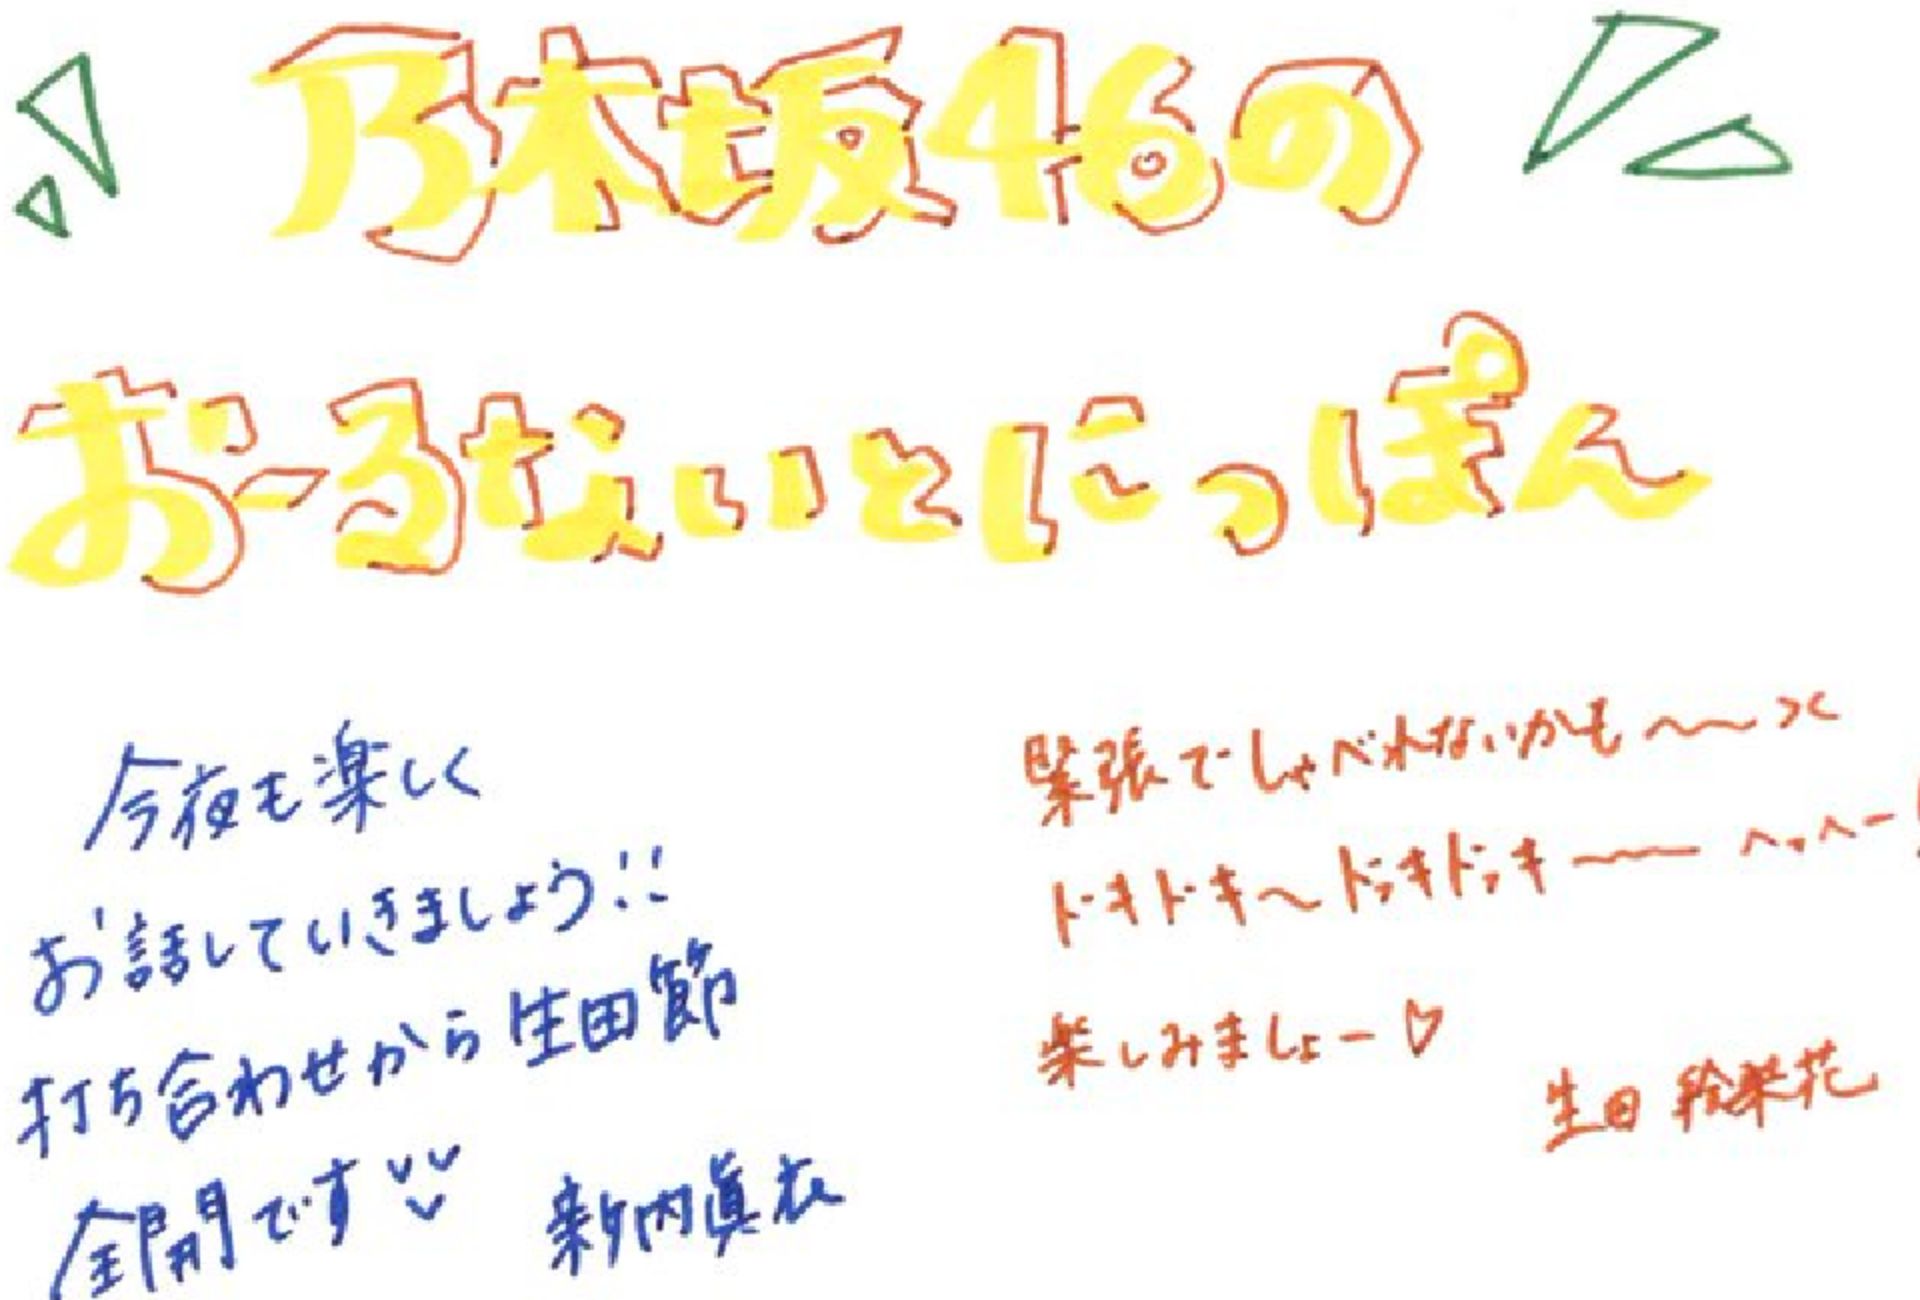 乃木坂46の
おーるないとにっぽん
今夜も楽しく
お話していきましょう!!
打ち合わせから生田節
全開です
新内眞衣
緊張でしゃべれないかも〜〜><
ドキドキ〜ドッキドッキ〜〜へっへー!
楽しみましょー♡
生田絵梨花